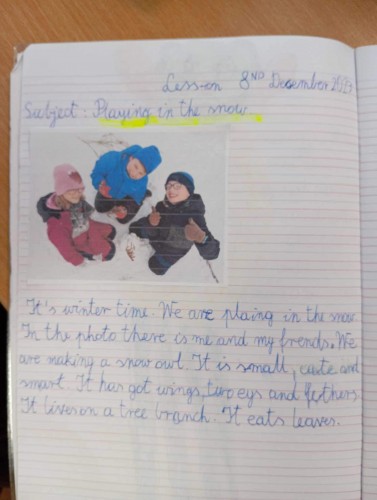 Lesson 8ND December 202
Subject: Playing in the snow.
It's winter time. We are plaing in the snow
In the photo there is me and my frends. We
are making a snow owl. It is small, cute and
smart. It has got wings, two eys and fethers.
It lives on a tree branch. It eats leaves.